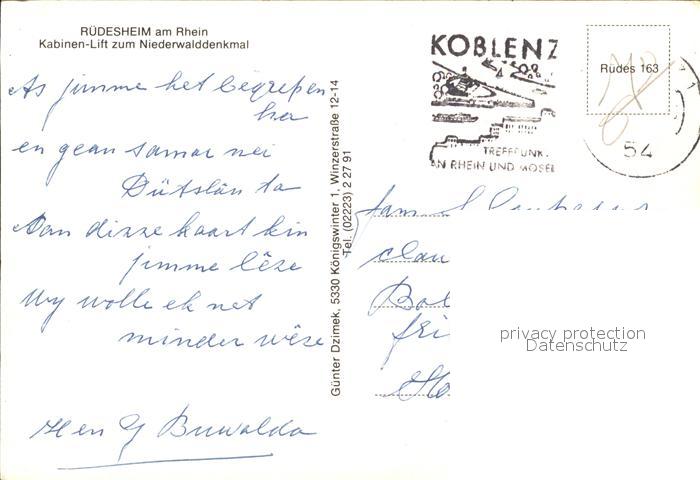 RÜDESHEIM am Rhein
Kabinen-Lift zum Niederwalddenkmal
As jimme het begrepen
her
en gean samar nei
Dútslân ta
Oan dizze kaart kin
jimme lêze
Wy wolle ek net
minder wêze
H en G Buwalda
Günter Dzimek, 5330 Königswinter 1, Winzerstraße 12-14
Tel. (02223) 2 27 91
KOBLENZ
TREFFPUNK
AN RHEIN UND MOSEL
54
Rüdes 163
fam
privacy protection
Datenschutz